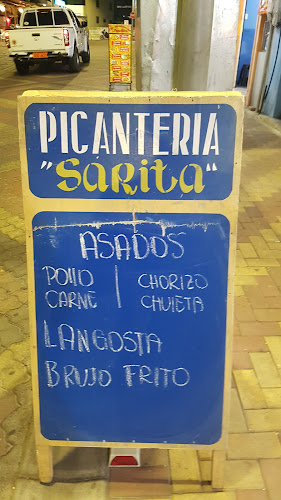 PICANTERIA
"SARITA"
ASADOS
POLLO | CHORIZO
CARNE | CHULETA
LANGOSTA
BRUJO FRITO